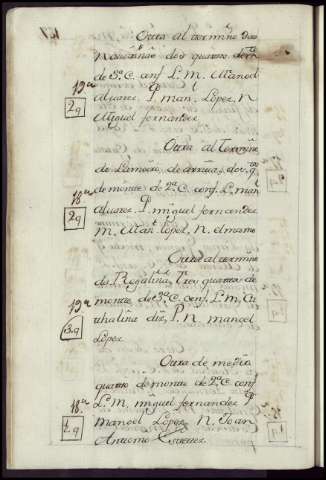 Otra al termino das
dos quartos
de 3ª C. conf L. M. Manoel
Alvarez P. man.l Lopez, N
Miguel fernandez
2q
Otra al Termino
de
de monte de 2ª C. conf. L. man.l
Alvarez P. miguel fernandez
M. Man.l Lopez, N. elmismo
18.n
2q
Otra al termino
das Regatiña, tres quartos de
monte de 3ª C. conf. L. M. Ca
thalina diz, P. N. manoel
Lopez
19.n
3q
Otra de medio
quarto de monte de 2ª C. conf
L. M. miguel fernandez P
Manoel Lopez N. Joan
Antonio Estevez
18.n